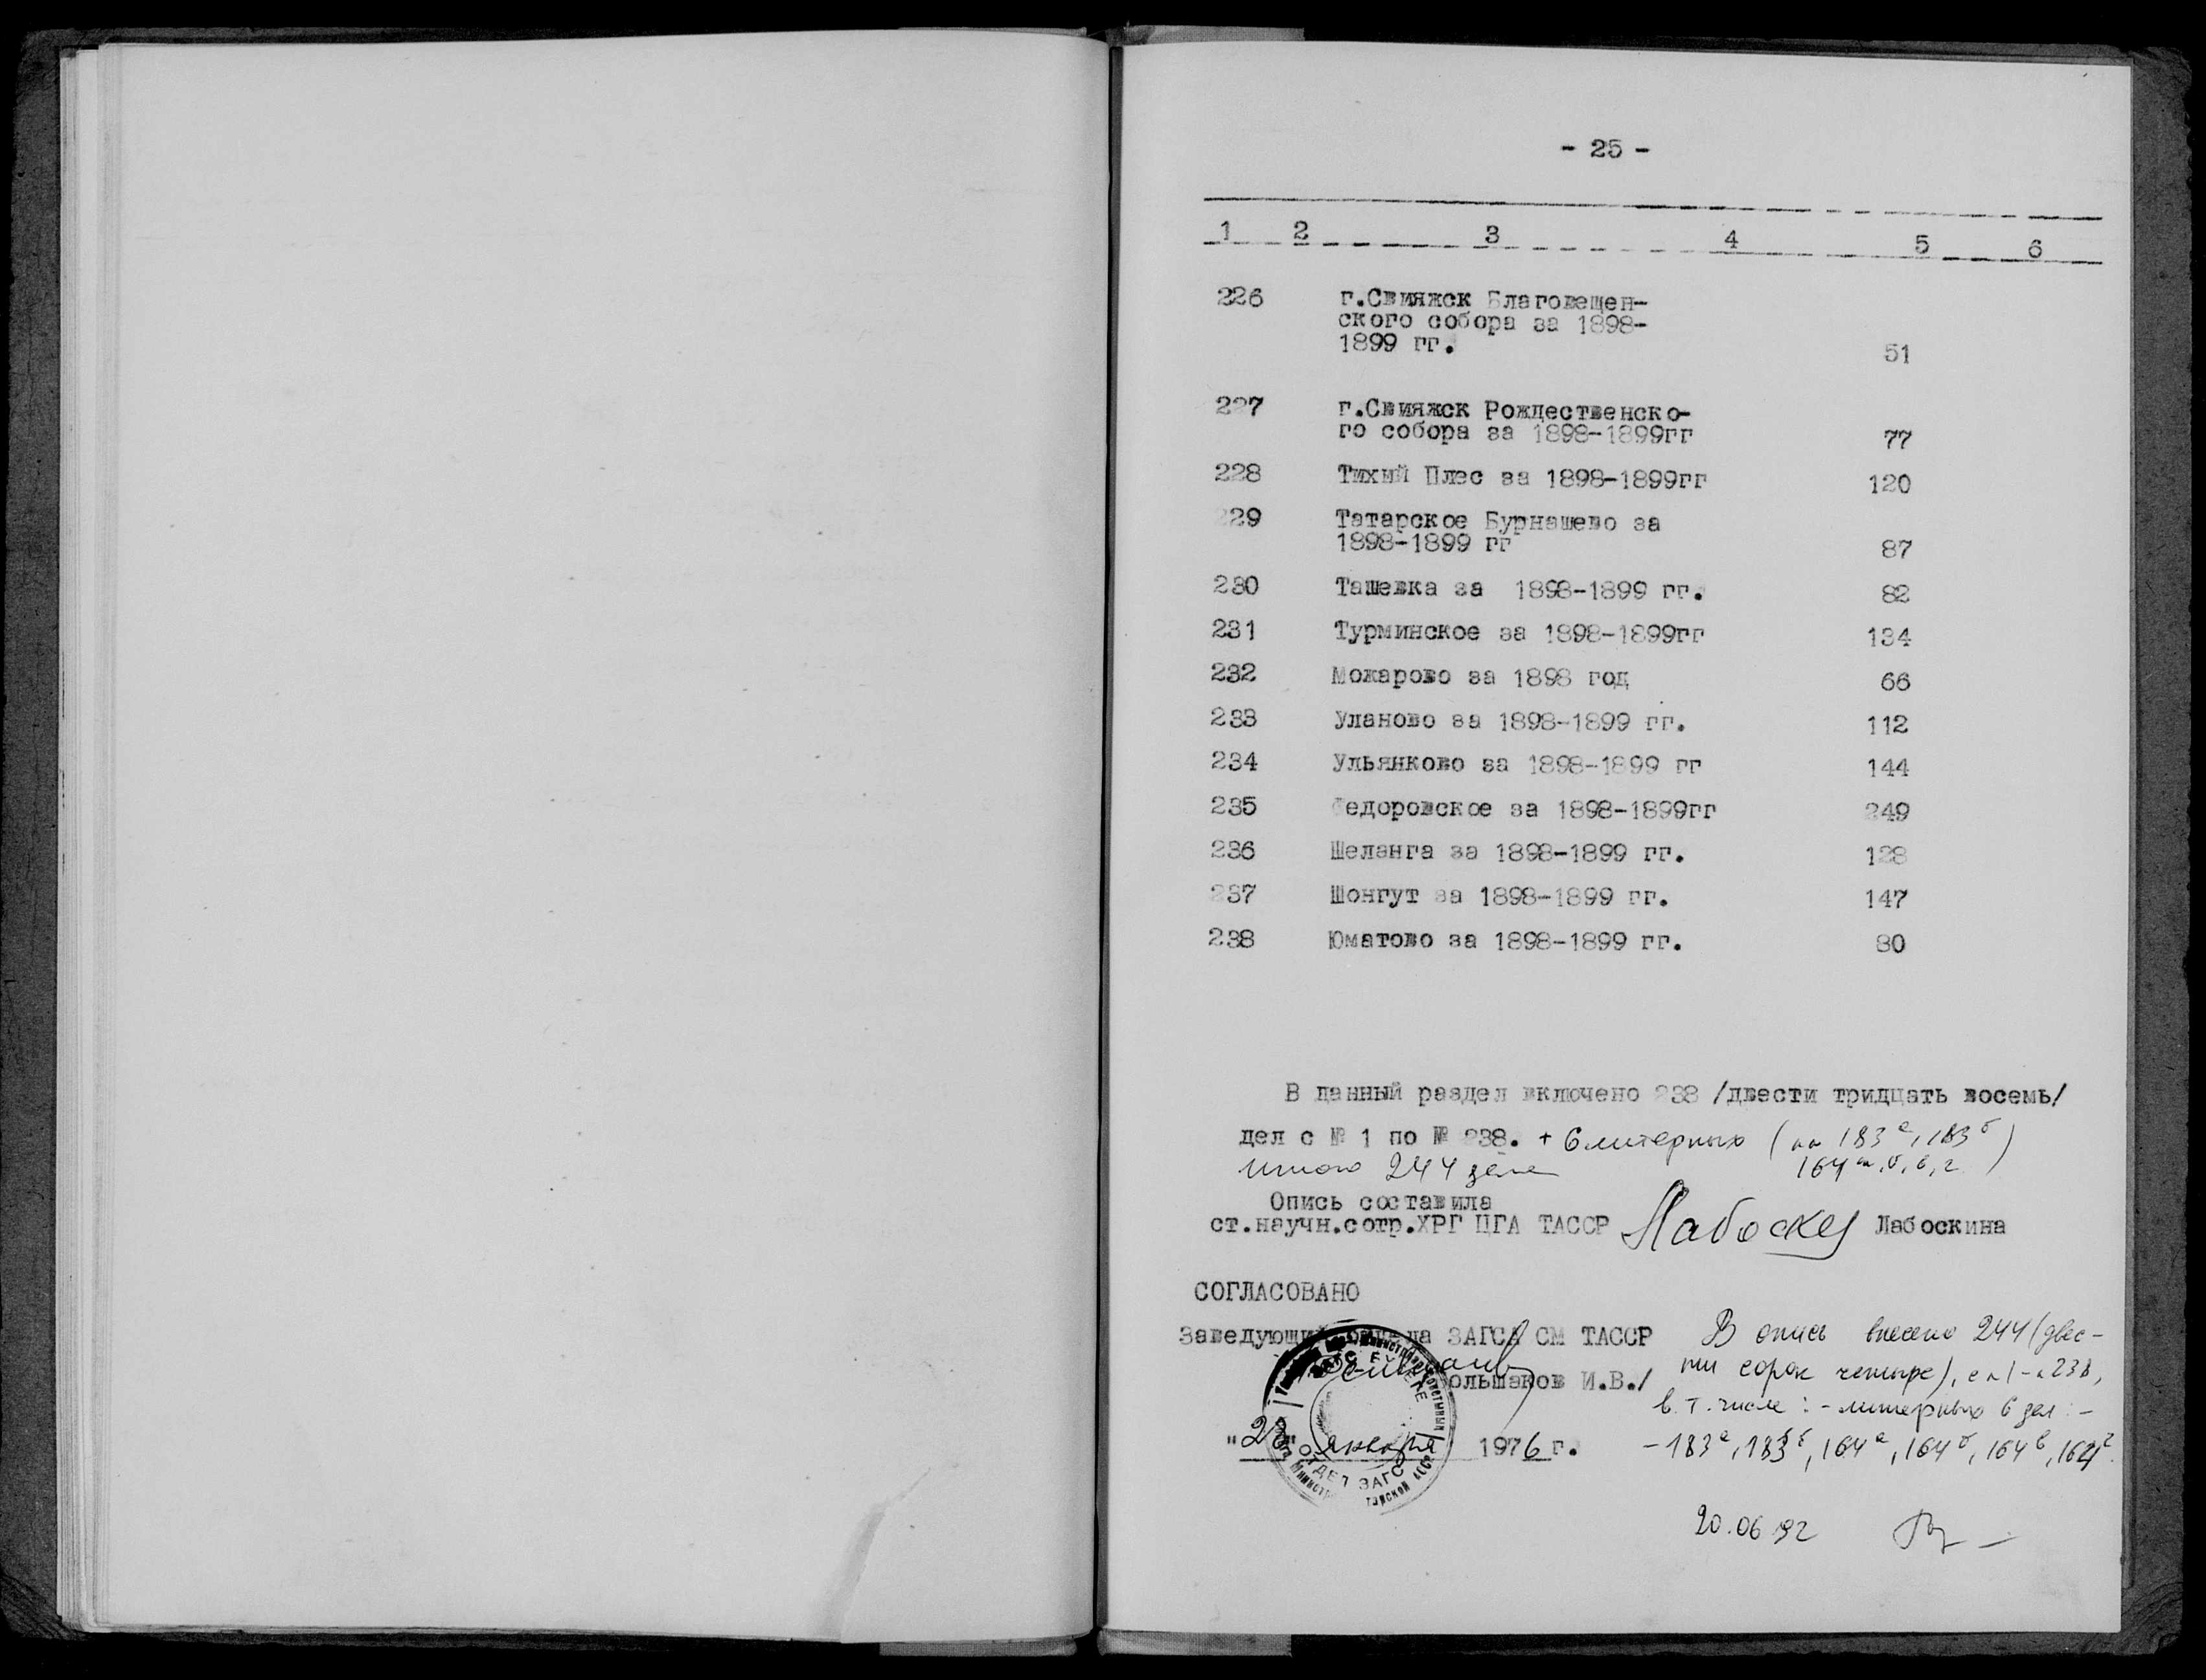 - 25 -
1 2 3 4 5 6
226 г.Свияжск Благовещен-
ского собора за 1898-
1899 гг. 51
227 г.Свияжск Рождественско-
го собора за 1898-1899гг 77
228 Тихий Плес за 1898-1899гг 120
229 Татарское Бурнашево за
1898-1899 гг 87
230 Ташевка за 1898-1899 гг. 82
231 Турминское за 1898-1899гг 134
232 Можарово за 1898 год 66
233 Уланово за 1898-1899 гг. 112
234 Ульянково за 1898-1899 гг 144
235 Федоровское за 1898-1899гг 249
236 Шеланга за 1898-1899 гг. 128
237 Шонгут за 1898-1899 гг. 147
238 Юматово за 1898-1899 гг. 80
В данный раздел включено 238 /двести тридцать восемь/
дел с № 1 по № 238. + 6 литерных (нн 183а, 183б
итого 244 дела 164а, б, в, г)
Опись составила
ст.научн.сотр.ХРГ ЦГА ТАССР Лабоскина
СОГЛАСОВАНО
Заведующий отдела ЗАГСА СМ ТАССР
Большаков И.В./
"28" января 1976 г.
ОТДЕЛ ЗАГС
В опись внесено 244 (две-
сти сорок четыре), с н 1-н 238,
в т. числе: - литерных 6 дел: -
- 183а, 183б, 164а, 164б, 164в, 164г.
20.06.92